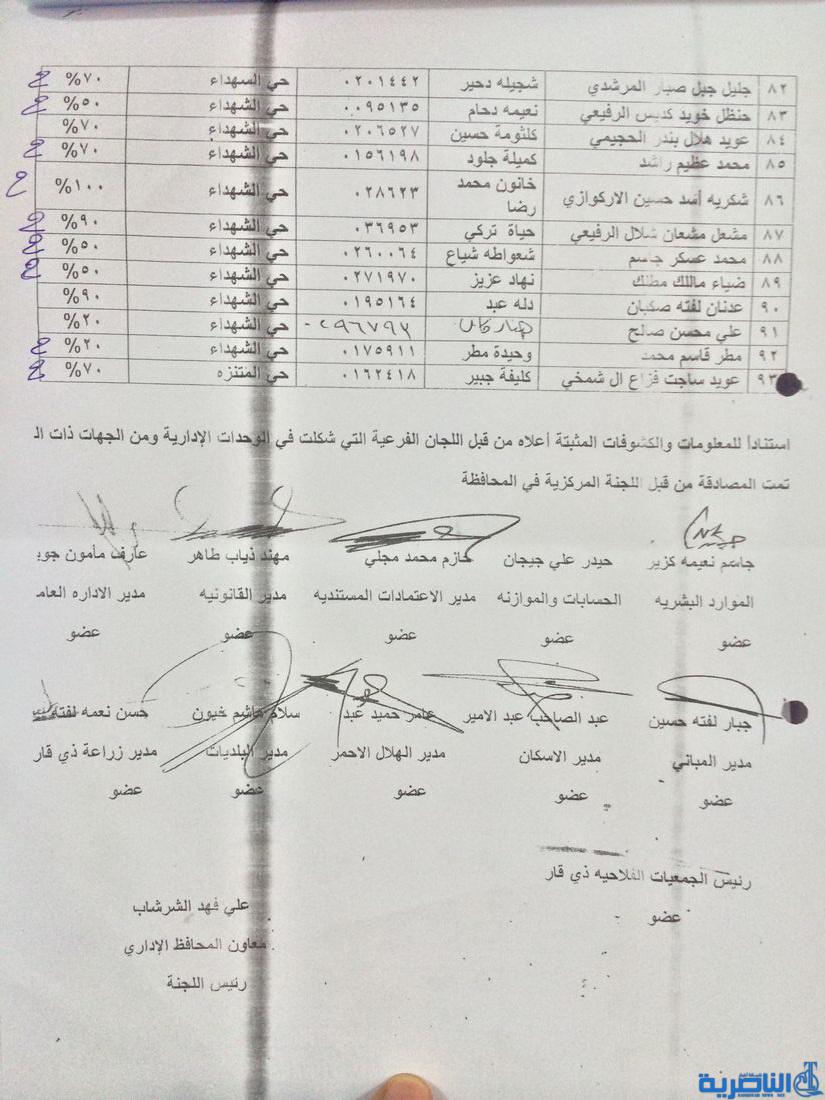 ٨٢ جليل جبل صبار المرشدي شجيله دحير ٠٢٠١٤٤٢ حي الشهداء ٧٠%
٨٣ حنظل خويد كديس الرفيعي نعيمه دحام ٠٠٩٥١٣٥ حي الشهداء ٥٠%
٨٤ عويد هلال بندر الحجيمي كلثومة حسين ٠٢٠٦٥٢٧ حي الشهداء ٧٠%
٨٥ محمد عظيم راشد كميلة جلود ٠١٥٦١٩٨ حي الشهداء ٧٠%
٨٦ شكريه أسد حسين الاركوازي خاتون محمد رضا ٠٢٨٦٢٣ حي الشهداء ١٠٠%
٨٧ مشعل مشعان شلال الرفيعي حياة تركي ٠٣٦٩٥٣ حي الشهداء ٩٠%
٨٨ محمد عسكر جاسم شعواطه شياع ٠٢٦٠٠٦٤ حي الشهداء ٥٠%
٨٩ ضياء مالك مطلك نهاد عزيز ٠٢٧١٩٧٠ حي الشهداء ٥٠%
٩٠ عدنان لفته صكبان دله عبد ٠١٩٥١٦٤ حي الشهداء ٩٠%
٩١ علي محسن صالح حي الشهداء ٢٠%
٩٢ مطر قاسم محمد وحيدة مطر ٠١٧٥٩١١ حي الشهداء ٢٠%
٩٣ عويد ساجت فزاع ال شمخي كليفة جبير ٠١٦٢٤١٨ حي المتنزه ٧٠%
استناداً للمعلومات والكشوفات المثبتة أعلاه من قبل اللجان الفرعية التي شكلت في الوحدات الإدارية ومن الجهات ذات ال
تمت المصادقة من قبل اللجنة المركزية في المحافظة
جاسم نعيمه كزير حيدر علي جيجان حازم محمد مجلي مهند ذياب طاهر عارف مامون جوب
الموارد البشريه الحسابات والموازنه مدير الاعتمادات المستنديه مدير القانونيه مدير الاداره العام
عضو عضو عضو عضو عضو
جبار لفته حسين عبد الصاحب عبد الامير عامر حميد عبد سلام هاشم خيون حسن نعمه لفته
مدير المباني مدير الاسكان مدير الهلال الاحمر مدير البلديات مدير زراعة ذي قار
عضو عضو عضو عضو عضو
رئيس الجمعيات الفلاحيه ذي قار
عضو
علي فهد الشرشاب
معاون المحافظ الإداري
رئيس اللجنة
الناصرية